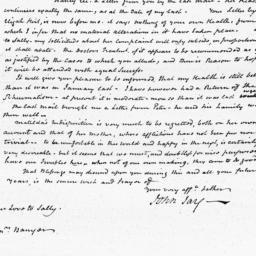 continues exactly the same, as at the Date of my last. Your letter by
Elijah Hill, is now before me. it says nothing of your own Health, from
which I infer that no material alteration in it have taken place.
to abate, my solicitude about her Complaint will only subside in proportion as
it shall abate. The Doctors Prescript. if it appear to be recommended as well
as justified by the Cases to which you allude, and there is Reason to hope
it will be attended with equal Success.
It will give you pleasure to be informed that my Health is still better
than it was in January last. I have however had a Return of the
Rheumatism — at present it is moderate
The last Mail brought me a Letter from Peter. he and his family were
then well —
Matilda's Indisposition is very much to be regretted, both on her own
account and that of her mother, whose afflictions have not been few nor
trivial. To be comfortable in this world and happy in the next, is certainly
very desirable. but it seems that we must, and doubtless for wise purposes
have our Troubles here. when not of our own making, they come to do good
That Blessings may abound upon you during this and all your future
Years is the sincere wish and Prayer of
your very affte. father
John Jay
Love to Sally.
Banyer